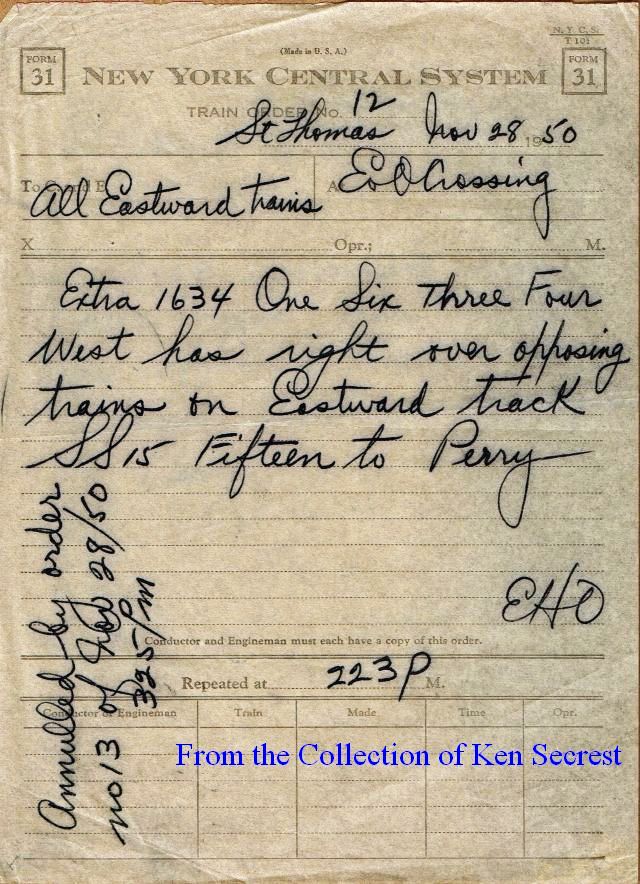 N. Y. C. S.
T 101
(Made in U. S. A.)
FORM
31
NEW YORK CENTRAL SYSTEM
FORM
31
TRAIN ORDER No. 12
St Thomas Nov 28 1950
To C and E
All Eastward trains
A
Crossing
X Opr.; M.
Extra 1634 One Six Three Four
West has right over opposing
trains on Eastward track
SS 15 Fifteen to Perry
EHO
Conductor and Engineman must each have a copy of this order.
Repeated at 223P M.
Conductor or Engineman Train Made Time Opr.
Annulled by order
no 13 of Nov 28/50
325PM
From the Collection of Ken Secrest